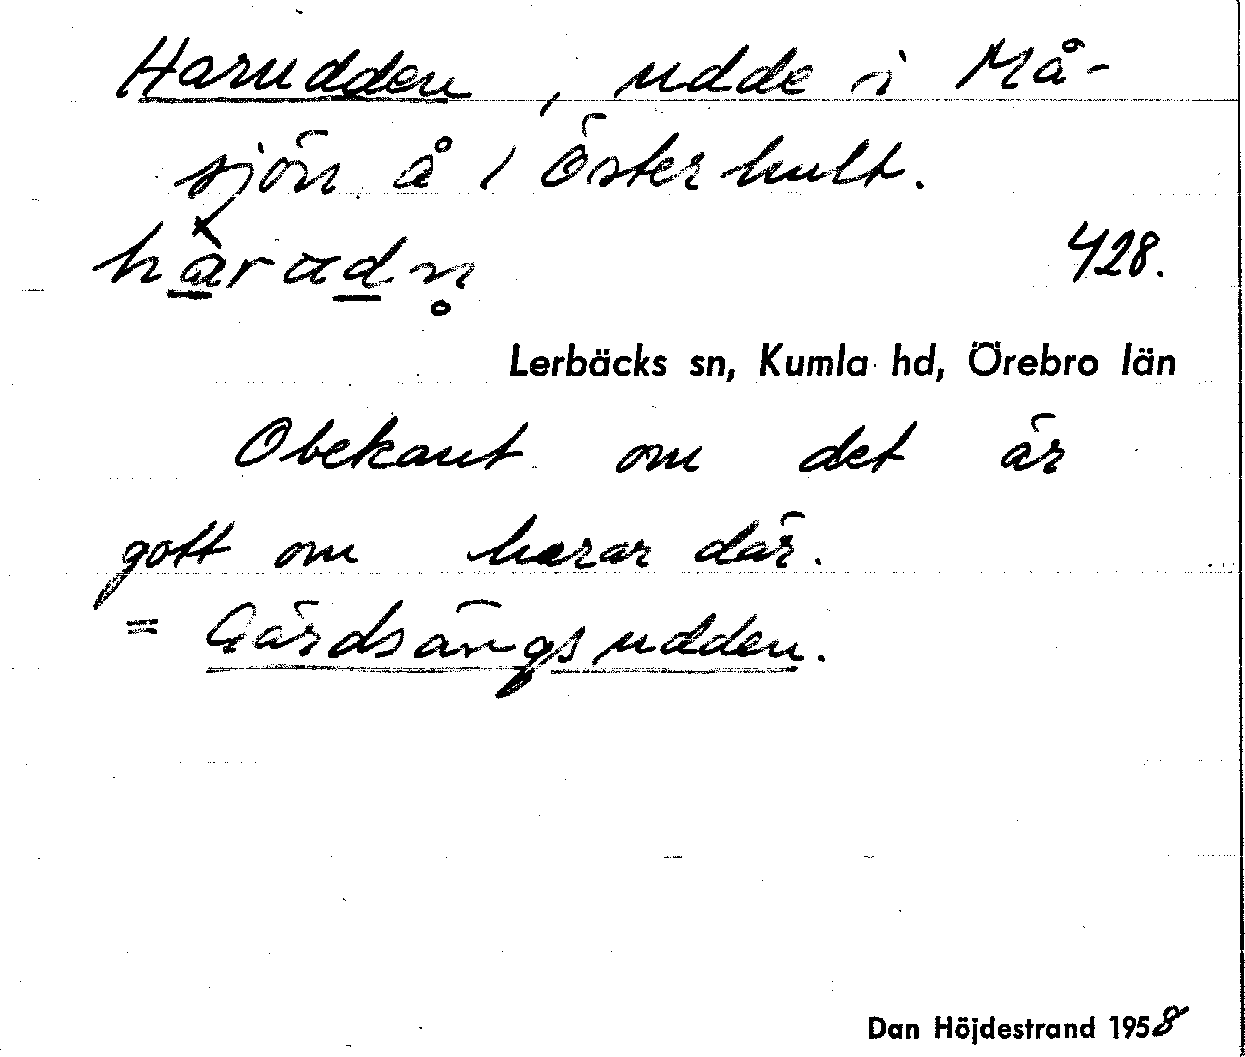 Harudden, udde i Må-
sjön å 1 Österhult.
hàradn̥ 428.
Lerbäcks sn, Kumla hd, Örebro län
Obekant om det är
gott om harar där.
= Gärdsängsudden.
Dan Höjdestrand 1958